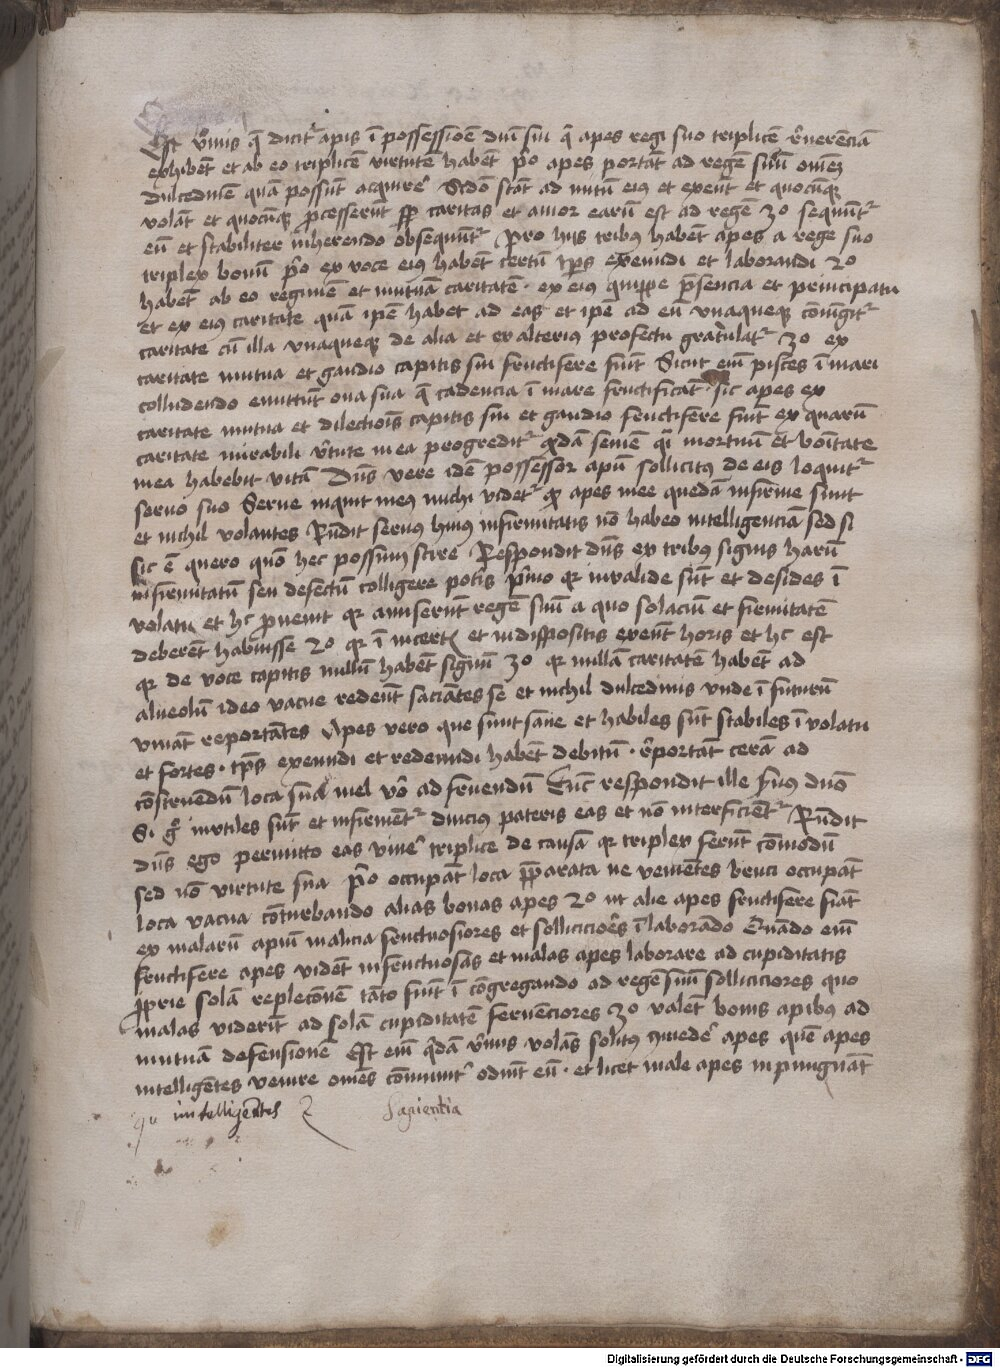 Est v̓mis q̄ dicit᷑ apis ī possessiōe dn̄i sui q̄ apes regi suo triplicē r̓uerēciā
exhibēt et ab eo triplicē virtutē habēt p̓o apes portāt ad regē suū omēȝ
dulcedinē quā possūt acquirer̓ Scd̓o stāt ad nutū eiꝰ et exeūt et quocūqꝫ
volāt et quocūqꝫ p̱cesserūt sp̱ caritas et amor earū est ad regē 3o sequūt᷑
eū et stabiliter inherendo obsequūt᷑ Pro hijs tribꝰ habēt apes a rege suo
triplex bonū p̓o ex voce eiꝰ habēt certū tp̄s exeundi et laborandi 2o
habēt ab eo regimē et mutuā caritatē · ex eiꝰ quippe p̄sencia et principatu
Et ex eiꝰ caritate quā ip̄e habet ad eas et ip̄e ad eū vnaqueqꝫ cōiūgit᷑
caritate cū illa vnaqueqꝫ de alia et ex alterius profectu grat̓ulat᷑ 3o ex
caritate mutua et gaudio capitis sui fructifere fiūt Sicut eīm pisces ī mari
colludendo emittūt oua sua q̄ cadencia ī mare fructificāt · sic apes ex
caritate mutua et dilectiōis capitis sui et gaudio fructifere fiūt ex quarū
caritate mirabili v̓tute mea progredit᷑ q̓dā semē q̓i mortuū et bōitate
mea habebit vitā Dn̄s vere idē possessor apū sollicitꝰ de eis loquit᷑
seruo suo Serue inquit meꝰ michi videt᷑ ꝙ apes mee quedā infirme sūnt
et nichil volantes Rn̄dit seruꝰ huiꝰ infirmitatis nō habeo intelligenciā sed si
sic ē quero quō hec possum scire Respondit dn̄s ex tribꝰ signis harū
infirmitatū seu defectū colligere pot̓is p̓mo qꝛ inualide sūt et desides ī
volatu et hͦ prouenit qꝛ amiserūt regē suū a quo solaciū et firmitatē
deberēt habuisse 2o qꝛ ī incertꝭ et indispositis exeūt horis et hͦ est
qꝛ de voce capitis nullū habēt signū 3o qꝛ nullā caritatē habēt ad
alueolū ideo vacue redeūt saciātes se et nichil dulcedinis vnde ī futurū
viuāt reportātes Apes vero que sunt sane et habiles sūt stabiles ī volatu
et fortes · tp̄s exeundi et redeundi habēt debitū · r̓portāt cerā ad
cōstruēdū loca sua mel v̓o ad fruendū Tūc respondit ille s̓uus dn̄o
Si gͦ inutiles sūt et infirmēt᷑ diucius pateris eas et nō interficiēt᷑ Rn̄dit
dn̄s ego permitto eas viuer̓ triplice de causa qꝛ triplex ferūt cōmodū
sed nō virtute sua p̓o occupāt loca p̄parata ne veniētes bruci occupāt
loca vacua cōturbando alias bonas apes 2o ut alie apes fructifere fiāt
ex malarū apiū malicia fructuosiores et solliciciōes ī laborādo Quādo eīm
fructifere apes vidēt infructuosas et malas apes laborare ad cupiditatis
proprie solā replecōnē tāto fiūt ī cōgregando ad regē suū solliciciores quo
malas viderīt ad solā cupiditatē feruēciores 3o valēt bonis apibꝰ ad
mutuā defensionē Est eīm q̓dā v̓mis volās solitꝰ ꝯmeder̓ apes quē apes
intelligētes venire omēs cōmunit̓ odiūt eū · et licet male apes in pungnāt
intelligentes
Sapientia
Digitalisierung gefördert durch die Deutsche Forschungsgemeinschaft - DFG